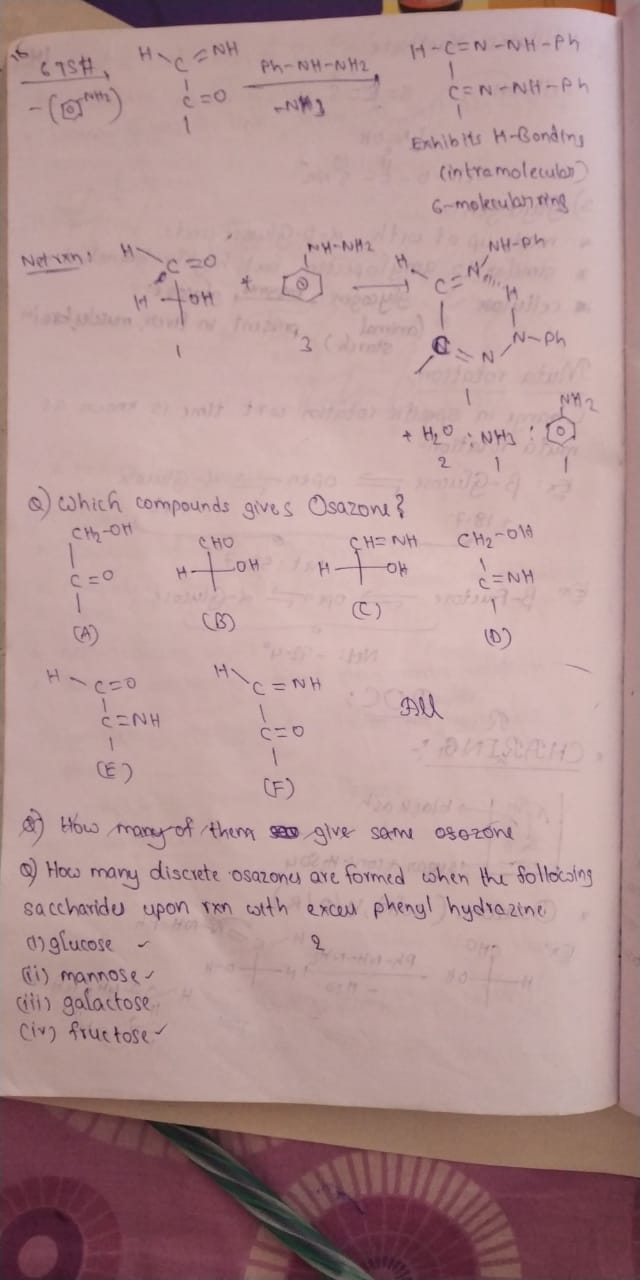 H C=NH Ph-NH-NH2 H-C=N-NH-Ph
-( NH2) C=O -NH3 C=N-NH-Ph
Exhibits H-Bonding
(intramolecular)
6-molecular ring
Net rxn: H C=O + NH-NH2 H C=N NH-Ph
H OH 3 H
C=N N-Ph
+ H2O ; NH3 ; NH2
2 1 1
Q) Which compounds gives Osazone?
CH2-OH CHO CH=NH CH2-OH
C=O H OH H OH C=NH
(A) (B) (C) (D)
H C=O H C=NH All
C=NH C=O
(E) (F)
Q) How many of them give same osozone
Q) How many discrete osazones are formed when the following
saccharides upon rxn with excess phenyl hydrazine
(i) glucose 2
(ii) mannose
(iii) galactose
(iv) fructose